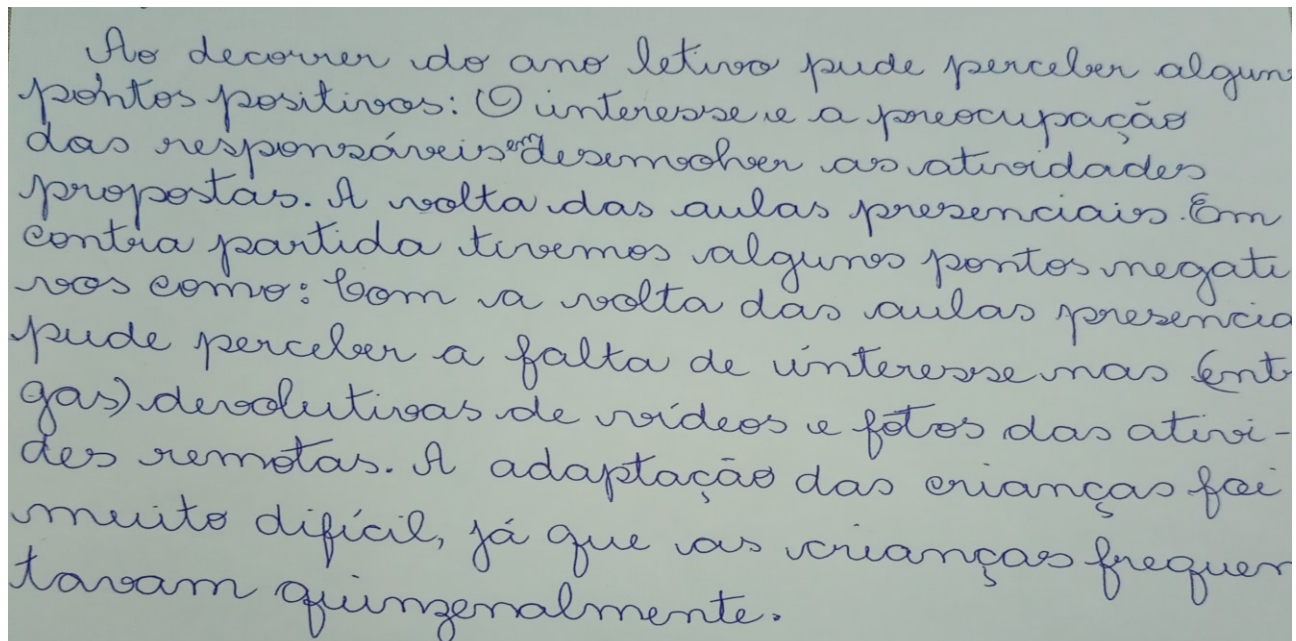 Ao decorrer do ano letivo pude perceber algun
pontos positivos: O interesse e a preocupação
das responsáveis em desemvolver as atividades
propostas. A volta das aulas presenciais. Em
contra partida tivemos alguns pontos negati
vos como: Com a volta das aulas presencia
pude perceber a falta de interesse nas (ent
gas) devolutivas de vídeos e fotos das ativi-
des remotas. A adaptação das crianças foi
muito difícil, já que as crianças frequen
tavam quinzenalmente.